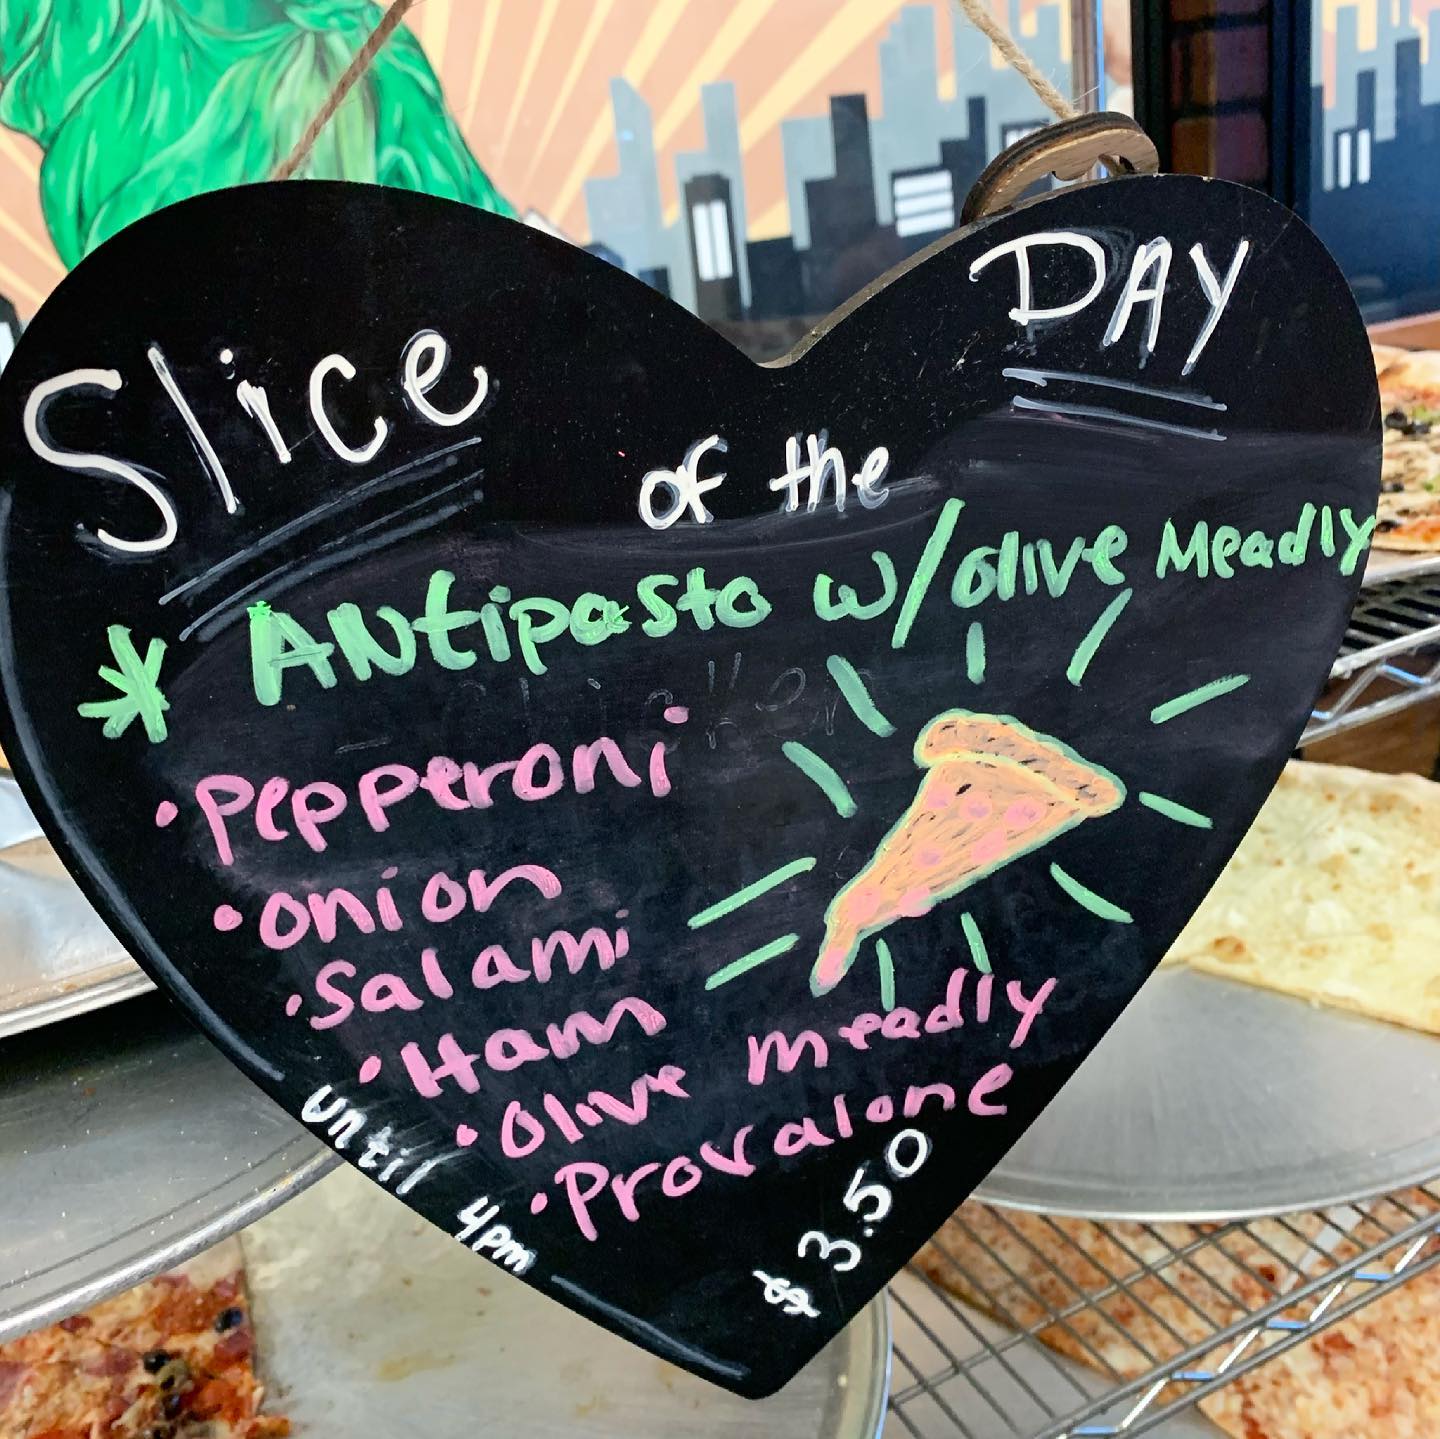 Slice of the DAY
* ANtipasto w/olive Meadly
• Pepperoni
• onion
• Salami
• Ham
• olive meadly
• Provalone
until 4pm
$3.50